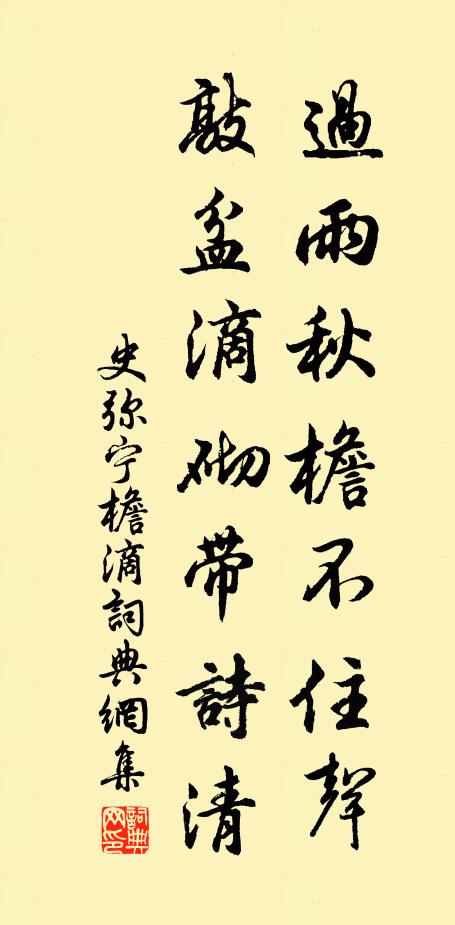 過雨秋檐不住聲
敲盆滴砌帶詩清
史弥宁檐滴詞典網集
詞典网印